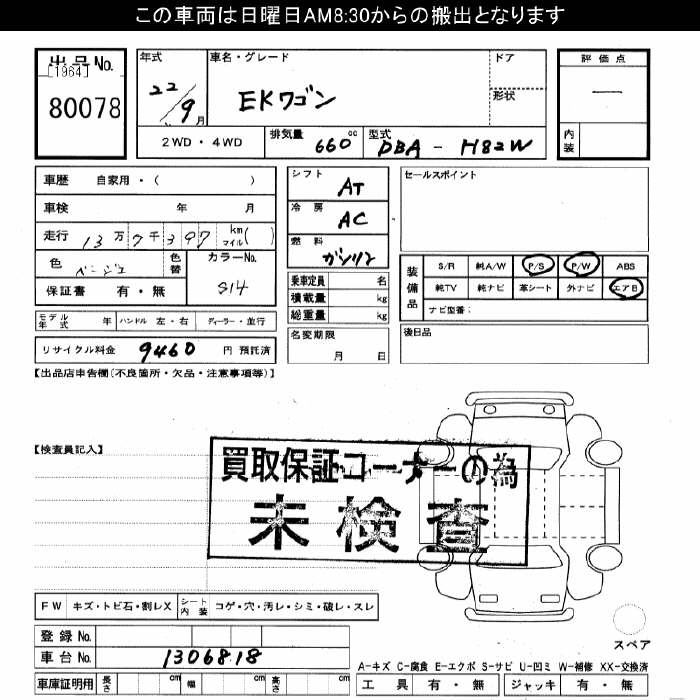 この車両は日曜日AM8:30からの搬出となります
出品No.
[1964]
80078
年式
22/9月
車名・グレード
EKワゴン
ドア
形状
評価点
—
内装
2WD・4WD
排気量
660cc
型式
DBA-H82W
車歴 自家用・( )
車検 年 月
走行 13万7千397 km マイル( )
色 ベージュ
色替
カラーNo.
S14
保証書 有・無
シフト
AT
冷房
AC
燃料
ガソリン
乗車定員 名
積載量 kg
総重量 kg
セールスポイント
装備品
S/R 純A/W P/S P/W ABS
純TV 純ナビ 革シート 外ナビ エアB
ナビ型番:
モデル年式 年 ハンドル 左・右 ディーラー・並行
名変期限
月 日
後日品
リサイクル料金 9460 円 預託済
【出品店申告欄(不良箇所・欠品・注意事項等)】
【検査員記入】
買取保証コーナーの為
未検査
FW キズ・トビ石・割レX
シート内装 コゲ・穴・汚レ・シミ・破レ・スレ
登録No.
車台No. 1306818
スペア
A-キズ C-腐食 E-エクボ S-サビ U-凹ミ W-補修 XX-交換済
車庫証明用 長さ cm 幅 cm 高さ cm
工具 有・無 ジャッキ 有・無